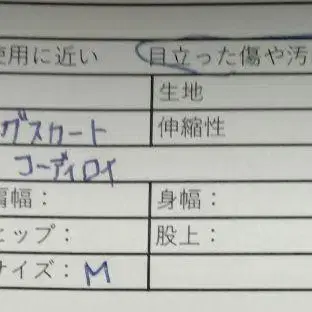 使用に近い 目立った傷や汚
生地
グスカート 伸縮性
コーディロイ
肩幅： 身幅：
ヒップ： 股上：
サイズ： M